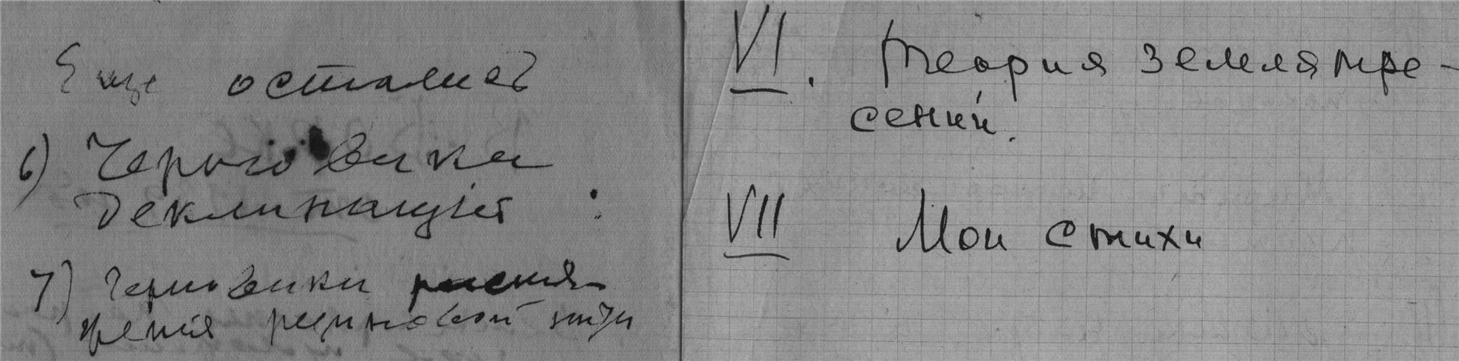 Еще остались
6) Черновики
деклинацiй :
7) Черновики растя-
жения резиновой нити
VI. Теория землятре-
сений.
VII Мои стихи